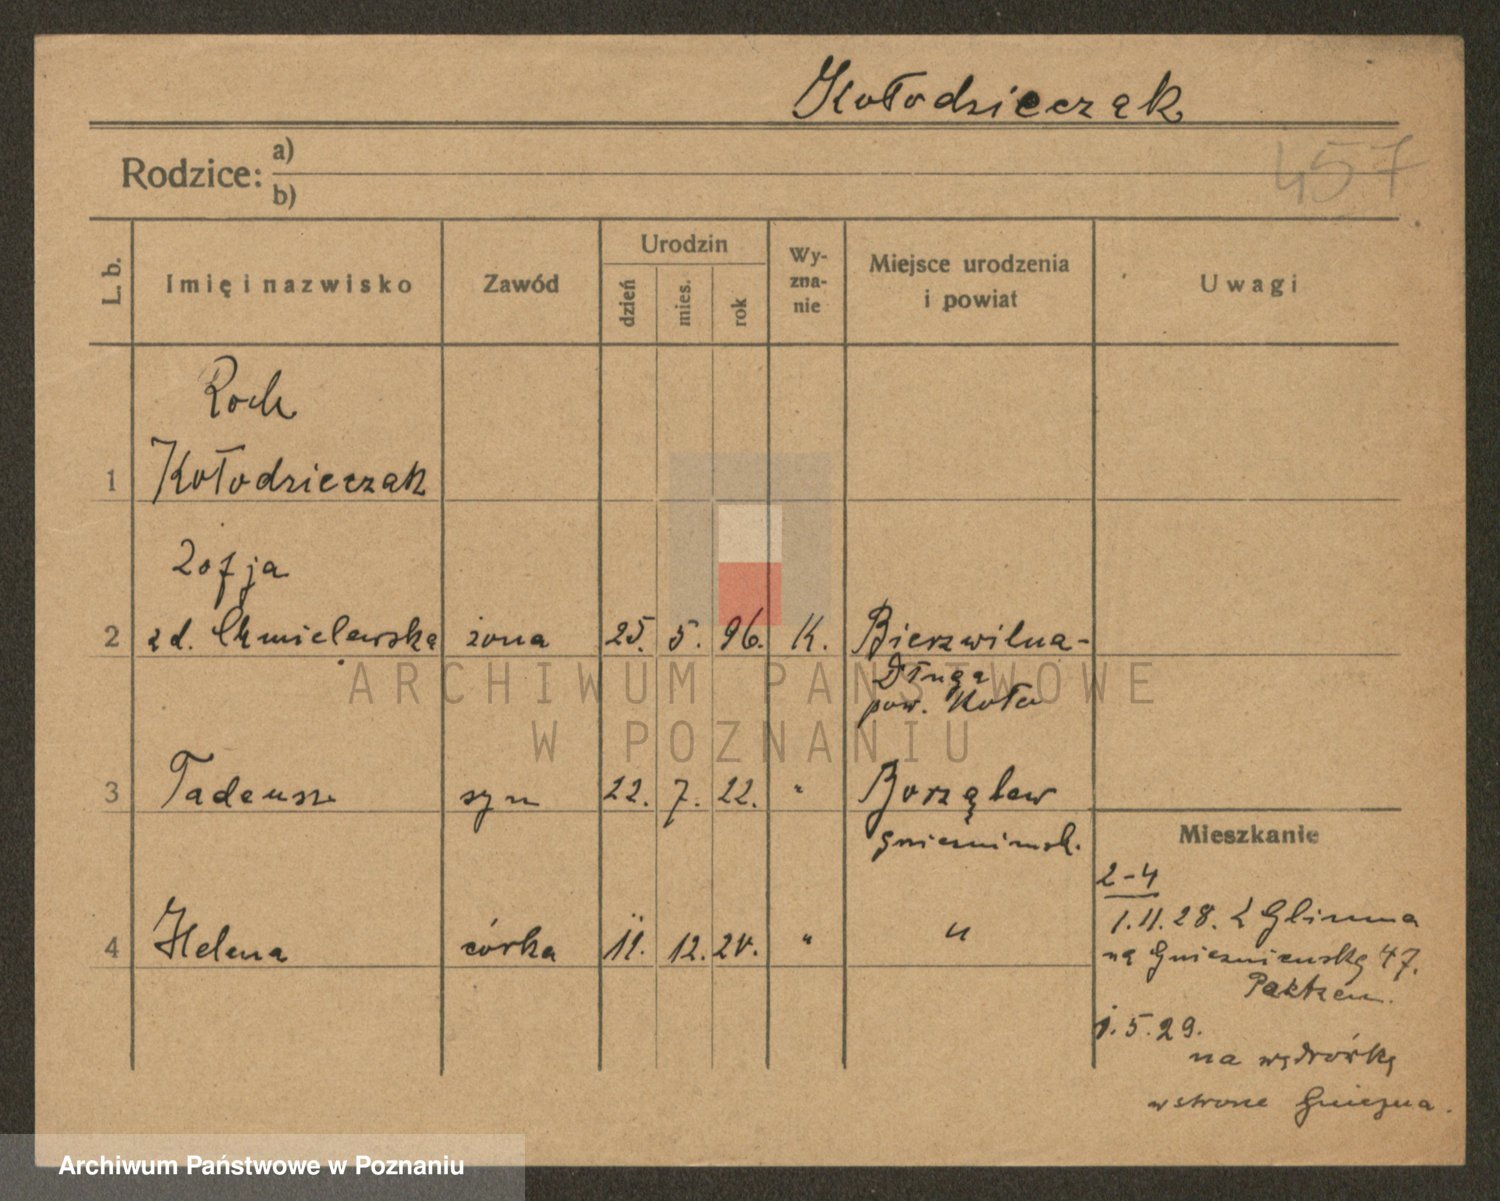 Kołodzieczak
Rodzice: a)
b)
457
L. b.
Imię i nazwisko
Zawód
Urodzin
dzień
mies.
rok
Wy-
zna-
nie
Miejsce urodzenia
i powiat
Uwagi
Roch
1 Kołodzieczak
Zofja
2 zd. Chmielewska żona 25. 5. 96. K. Bierzwilna-
Długa
pow. Koło
3 Tadeusz syn 22. 7. 22. " Borzątew
gniezninsk.
4 Helena córka 11. 12. 24. " "
Mieszkanie
2-4
1.11.28. Z Glinna
na Gnieznienską 47.
1.5.29.
na wędrówkę
w stronę Gniezna.
ARCHIWUM PAŃSTWOWE
W POZNANIU
Archiwum Państwowe w Poznaniu